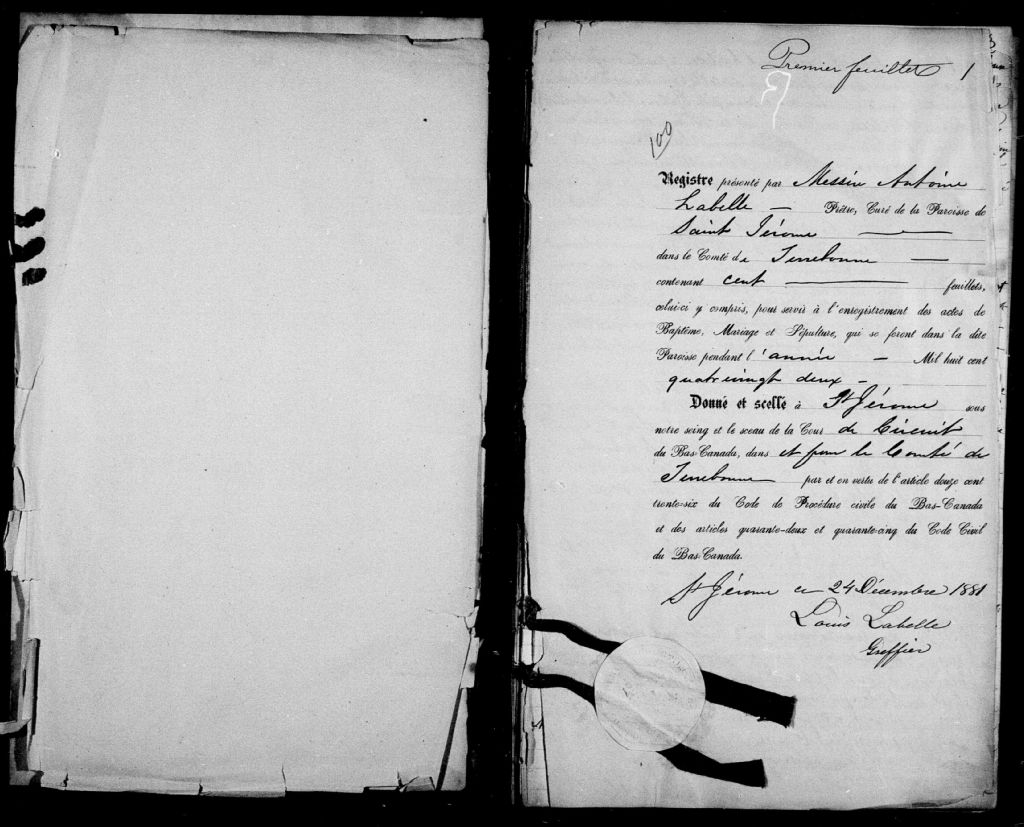 Premier feuillet 1
100
Registre présenté par Messire Antoine
Labelle — Prêtre, Curé de la Paroisse de
Saint Jérome —
dans le Comté de Terrebonne —
contenant cent — feuillets,
celui-ci y compris, pour servir à l'enregistrement des actes de
Baptême, Mariage et Sépulture, qui se feront dans la dite
Paroisse pendant l'année — Mil huit cent
quatrevingt deux —
Donné et scellé à St Jérome sous
notre seing et le sceau de la Cour de Circuit
du Bas-Canada, dans et pour le Comté de
Terrebonne par et en vertu de l'article douze cent
trente-six du Code de Procédure civile du Bas-Canada
et des articles quarante-deux et quarante-cinq du Code Civil
du Bas-Canada.
St Jérome ce 24 Décembre 1881
Louis Labelle
Greffier